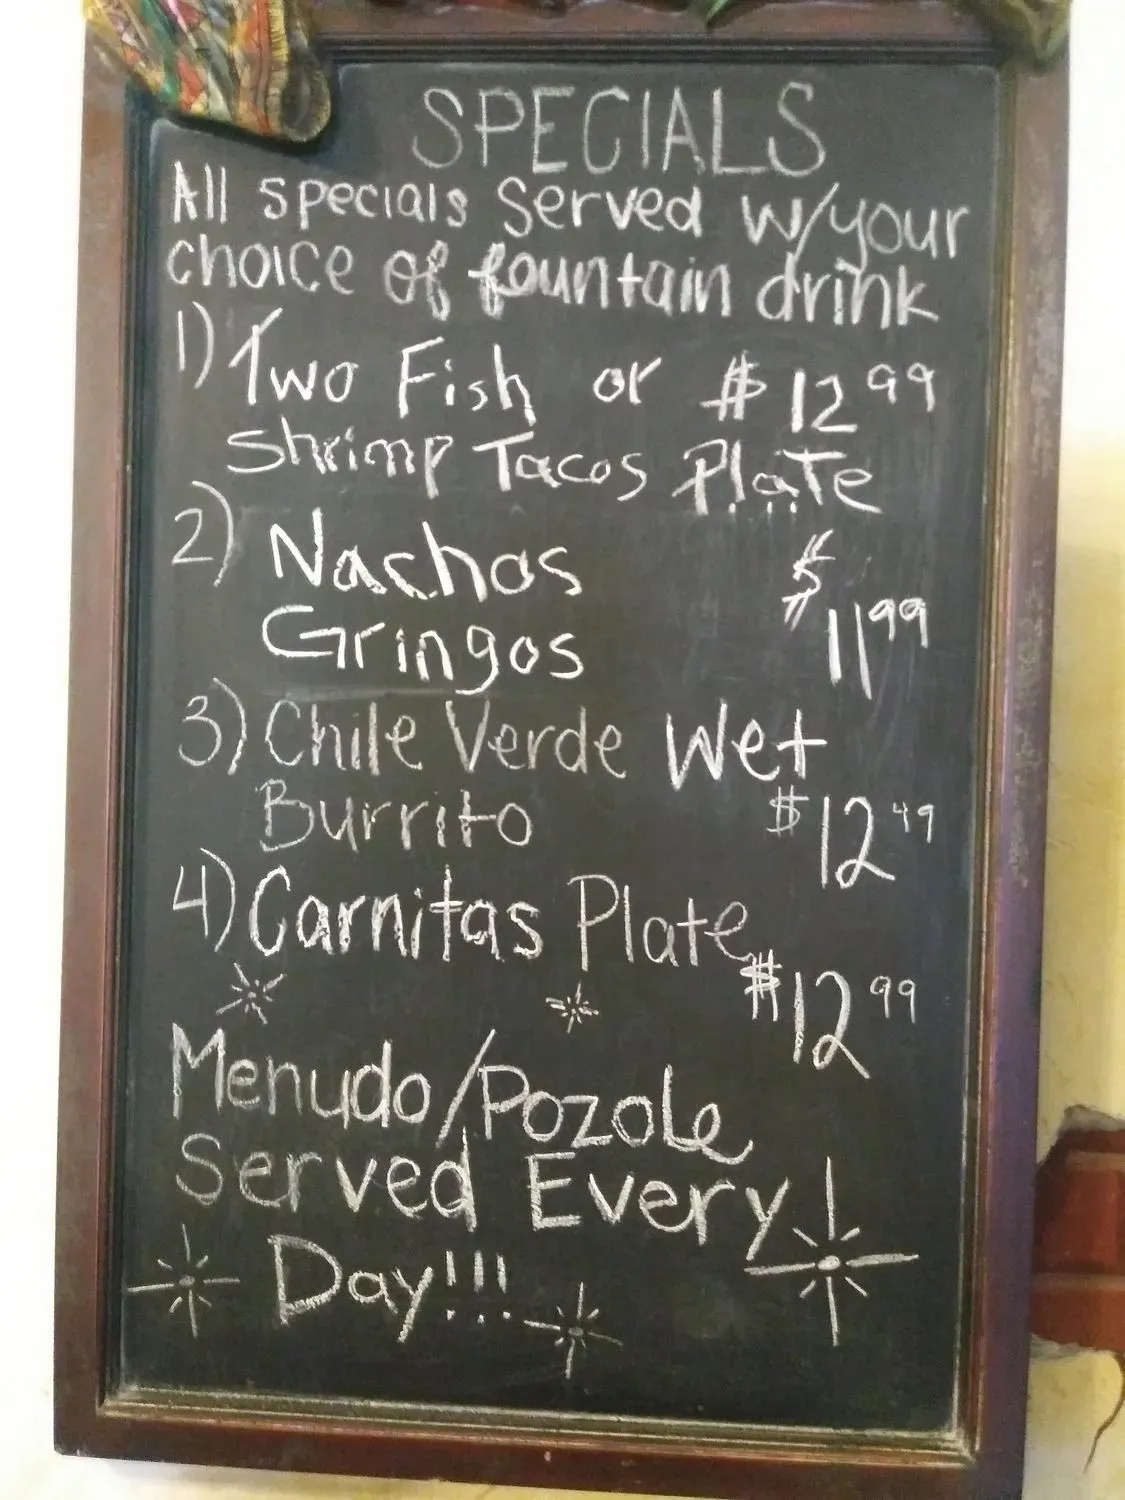 SPECIALS
All specials Served w/your
choice of fountain drink
1) Two Fish or $12.99
Shrimp Tacos Plate
2) Nachos $
Gringos 11.99
3) Chile Verde Wet
Burrito $12.49
4) Carnitas Plate
$12.99
Menudo/Pozole
Served Every
Day!!!